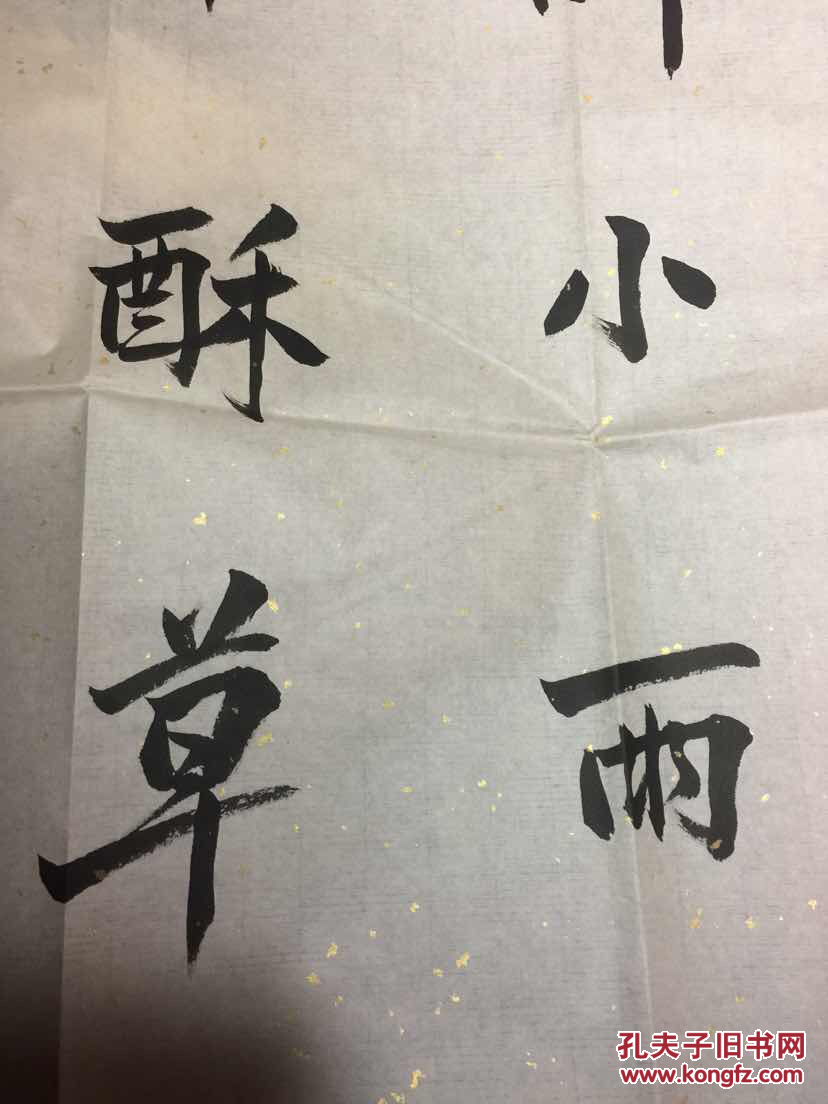 小雨
酥草
孔夫子旧书网
www.kongfz.com